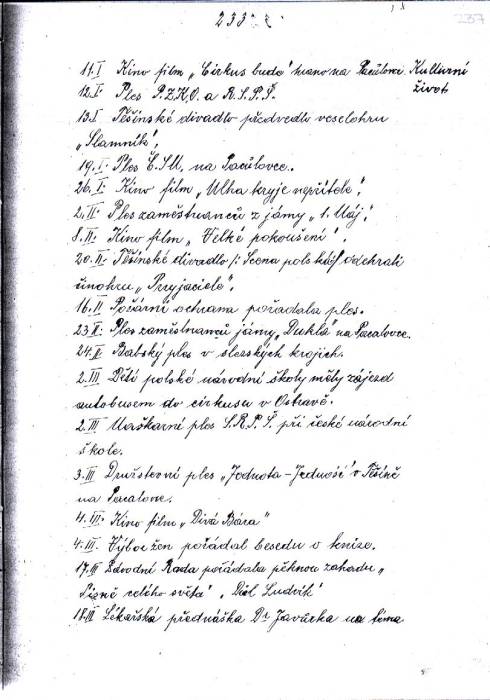 233
237
11.I Kino film „Cirkus bude" hrano na Pacalovce. Kulturní
12.I Ples P.Z.K.O. a R.S.P.Š. život
13.I Těšínské divadlo předvedlo veselohru
„Slamník".
19.I. Ples Č.S.M. na Pacalovce.
26.I. Kino film „Mlha kryje nepřítele".
2.II. Ples zaměstnanců z jámy „1. Máj".
8.II. Kino film „Velké pokoušení".
20.II. Těšínské divadlo /: Scena polská:/ odehrali
činohru „Przyjaciele".
16.II Požární ochrana pořádala ples.
23.II. Ples zaměstnanců jámy „Dukla" na Pacalovce.
24.II Babský ples v slezských krojích.
2.III Děti polské národní školy měly zájezd
autobusem do cirkusu v Ostravě.
2.III Maškarní ples S.R.P.Š. při české národní
škole.
3.III Družstevní ples „Jednota - Jedność" v Těšíně
na Pacalovce.
4.III. Kino film „Divá Bára"
4.III. Výbor žen pořádal besedu o knize.
17.III Závodní Rada pořádala pěknou zahadu „
Písně celého světa" „Důl Ludvík"
18.III Lékařská přednáška Dr Javůrka na téma